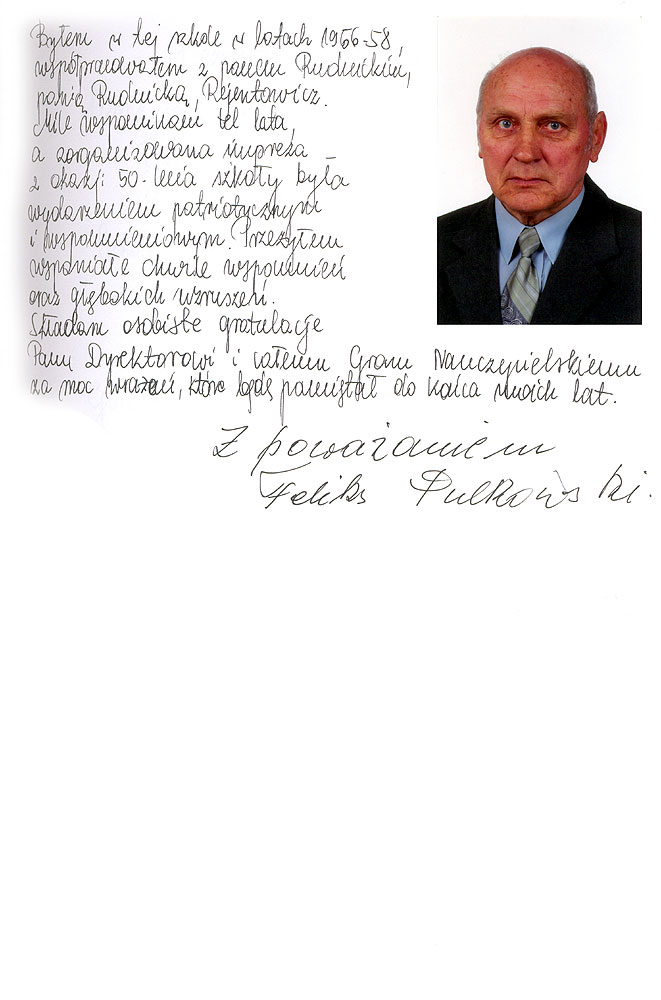 Byłem w tej szkole w latach 1956-58,
współpracowałem z panem Rudnickim,
panią Rudnicką, Rejentowicz.
Mile wspominam te lata,
a zorganizowana impreza
z okazji 50-lecia szkoły była
wydarzeniem patriotycznym
i wspomnieniowym. Przeżyłem
wspaniałe chwile wspomnień
oraz głębokich wzruszeń.
Składam osobiste gratulacje
Panu Dyrektorowi i całemu Gronu Nauczycielskiemu
za moc wrażeń, które będę pamiętał do końca moich lat.
Z poważaniem
Feliks Pulkowski.